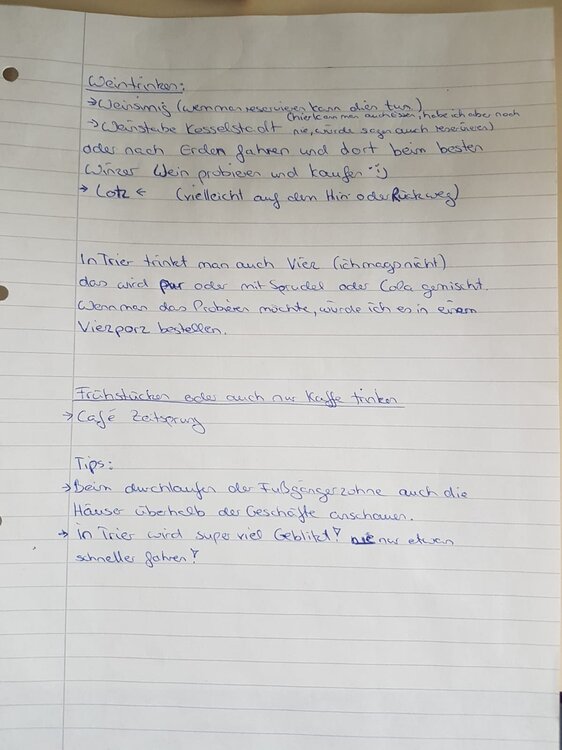 Weintrinken:
→ Weinsinnig (wenn man reservieren kann dies tun)
(hier kann man auch essen, habe ich aber noch
→ Weinstube Kesselstadt nie, würde sagen auch reservieren)
oder nach Erden fahren und dort beim besten
Winzer Wein probieren und kaufen :)
→ Lotz ← (vielleicht auf dem Hin oder Rückweg)
In Trier trinkt man auch Viez (ich mags nicht)
das wird pur oder mit Sprudel oder Cola gemischt.
Wenn man das Probieren möchte, würde ich es in einem
Viezporz bestellen.
Frühstücken oder auch nur Kaffe trinken
→ Café Zeitsprung
Tips:
→ Beim durchlaufen der Fußgängerzohne auch die
Häuser überhalb der Geschäfte anschauen.
→ in Trier wird super viel Geblitzt! nie nur etwas
schneller fahren!